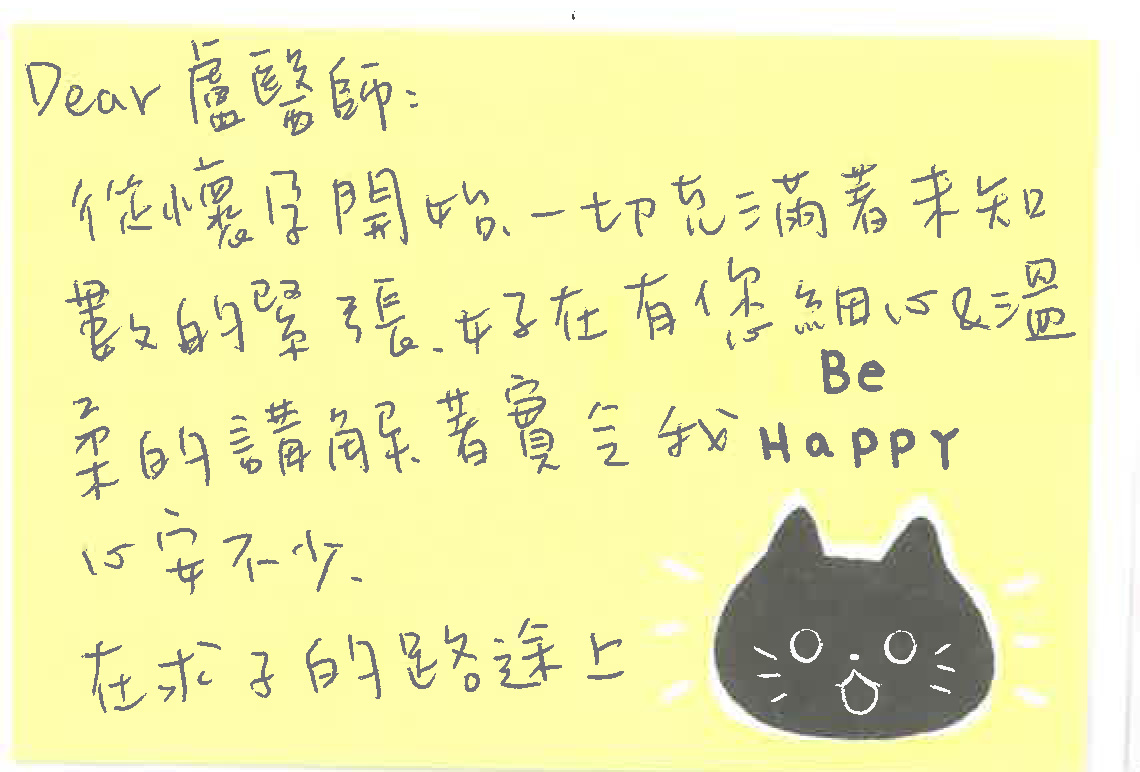 Dear 盧醫師:
從懷孕開始、一切充滿著未知
數的緊張、好在有您細心&溫
柔的講解、著實令我
心安不少、
在求子的路途上
Be
Happy